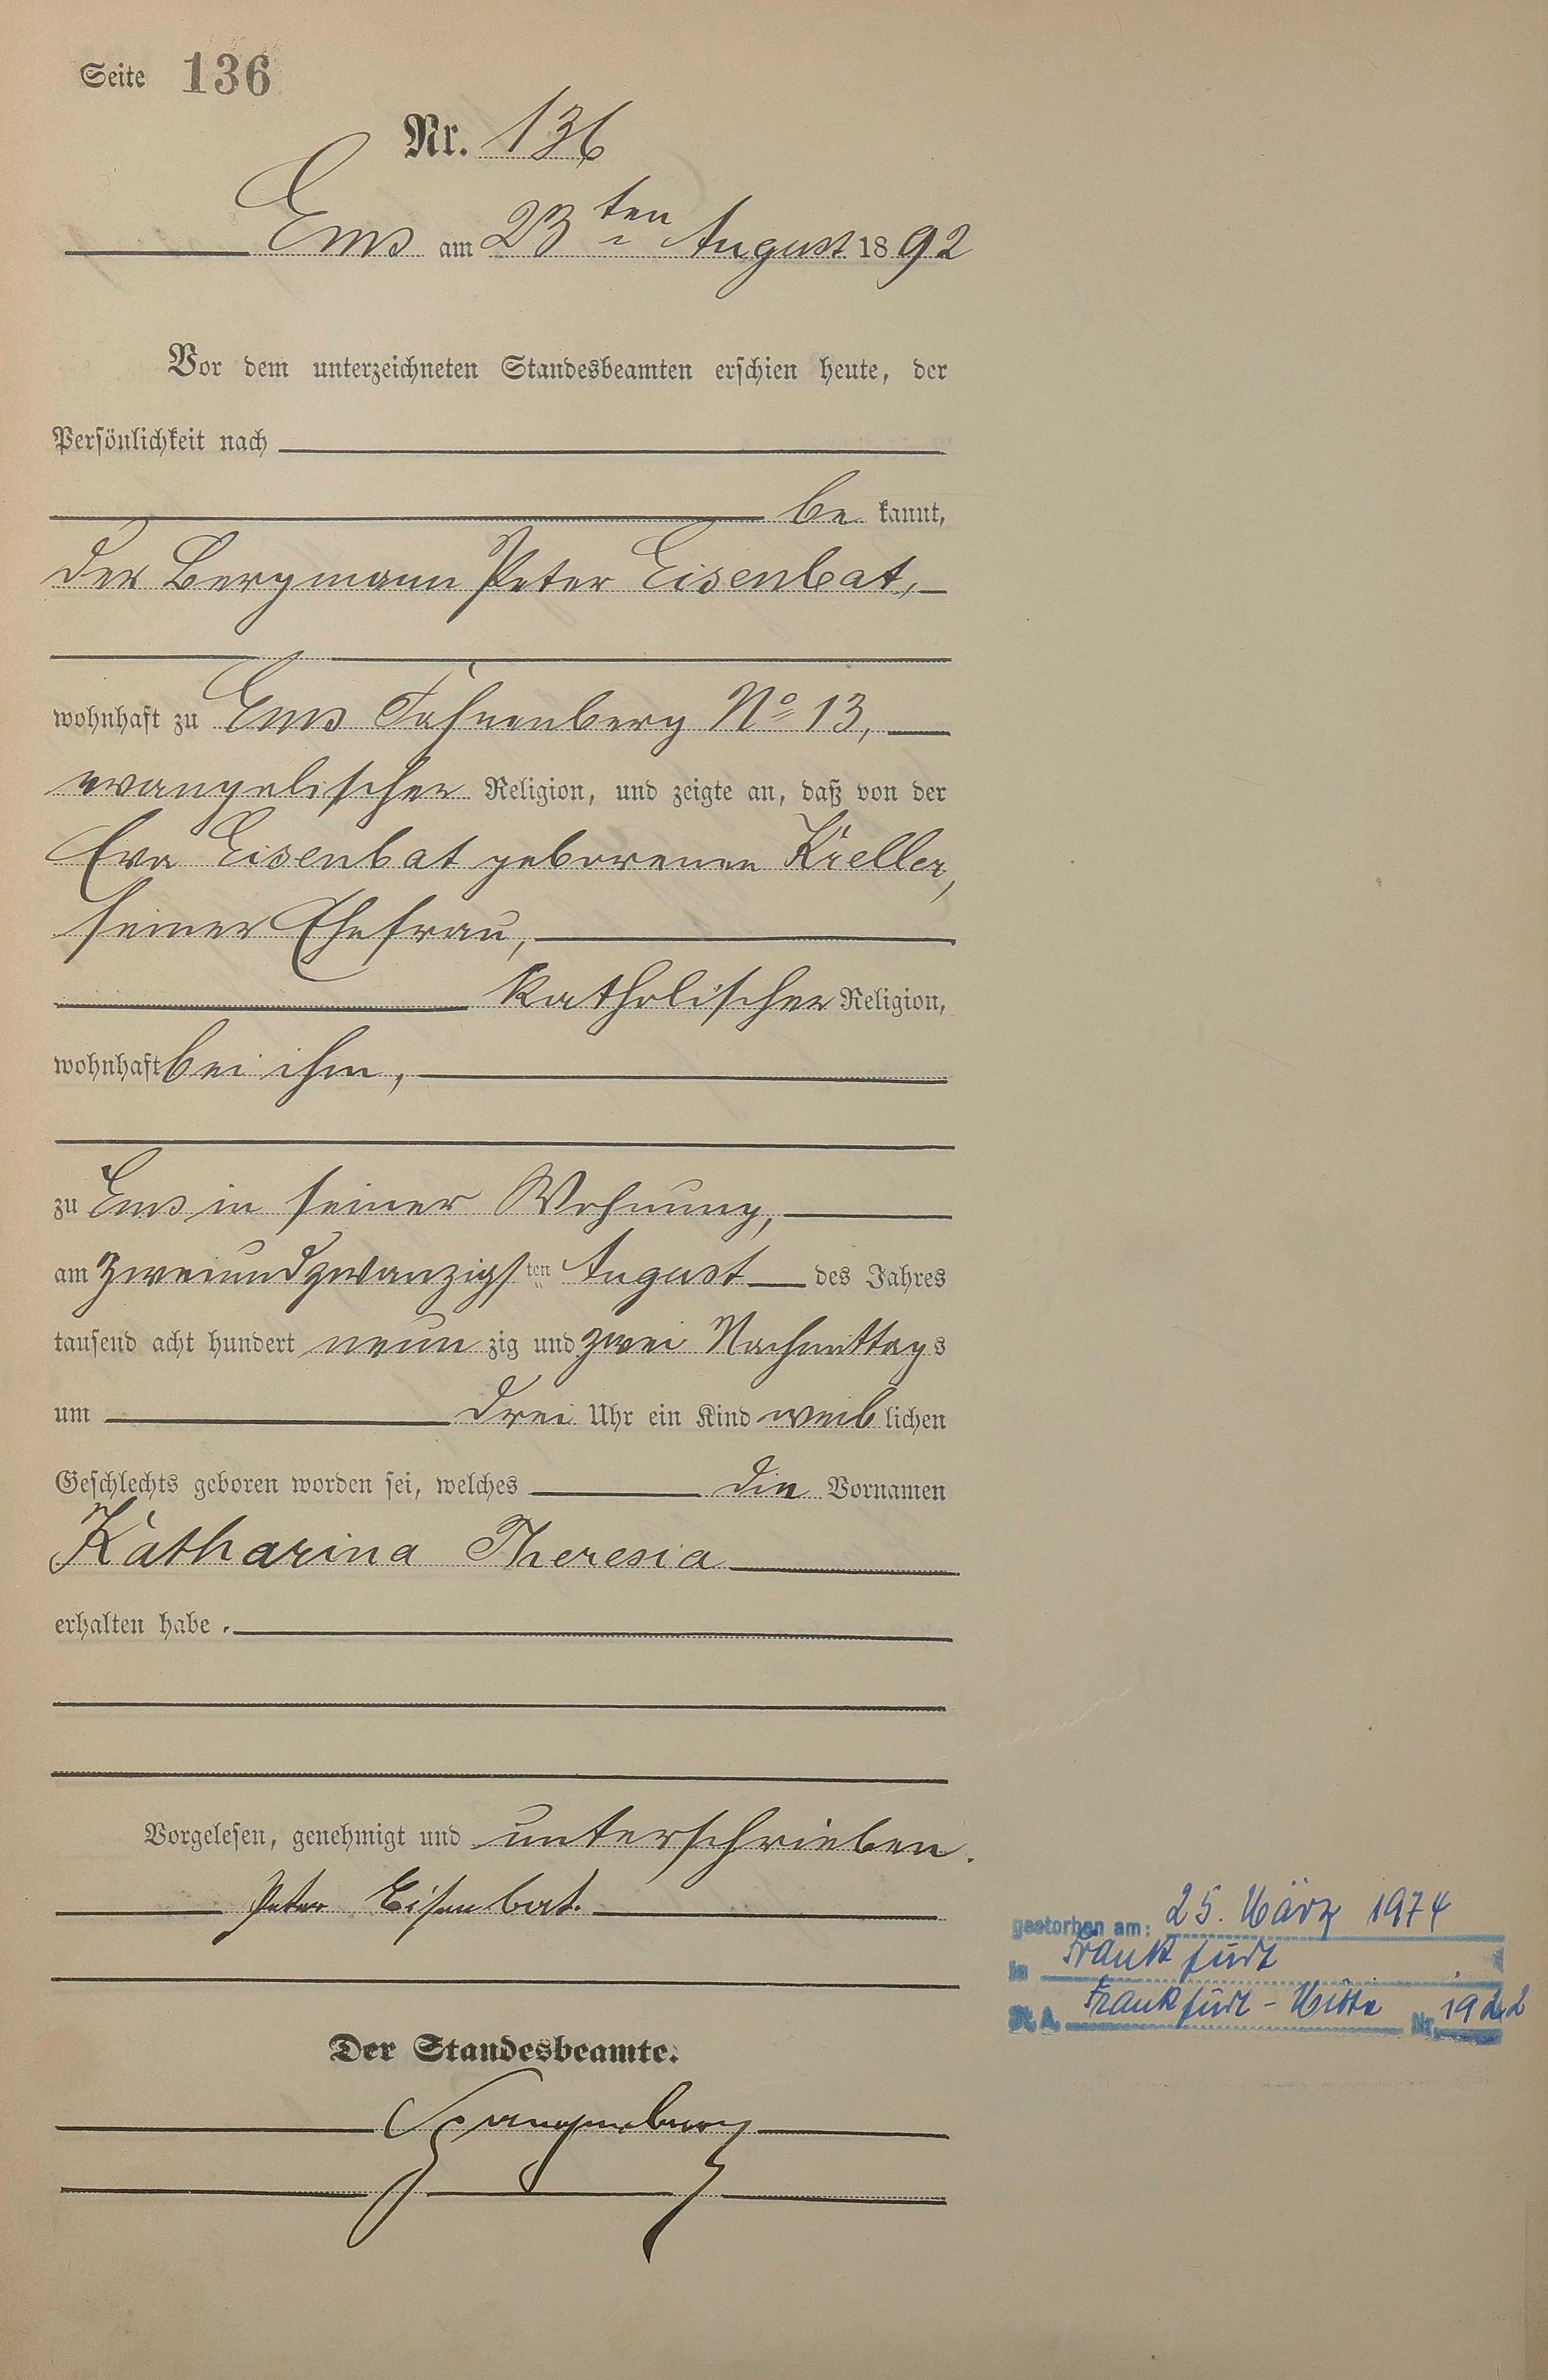 Seite 136
Nr. 136
Ems am 23ten August 1892
Vor dem unterzeichneten Standesbeamten erschien heute, der
Persönlichkeit nach
be kannt,
der Bergmann Peter Eisenbat,
wohnhaft zu Ems Fahnenberg No 13,
evangelischer Religion, und zeigte an, daß von der
Eva Eisenbat geborenen
seiner Ehefrau,
katholischer Religion,
wohnhaft bei ihm,
zu Ems in seiner Wohnung,
am zweiundzwanzigsten August des Jahres
tausend acht hundert neun zig und zwei Nachmittags
um drei Uhr ein Kind weiblichen
Geschlechts geboren worden sei, welches die Vornamen
Katharina Theresia
erhalten habe.
Vorgelesen, genehmigt und unterschrieben.
Peter Eisenbat.
Der Standesbeamte.
gestorben am: 25. März 1974
in Frankfurt
St. A. Frankfurt-Mitte Nr.